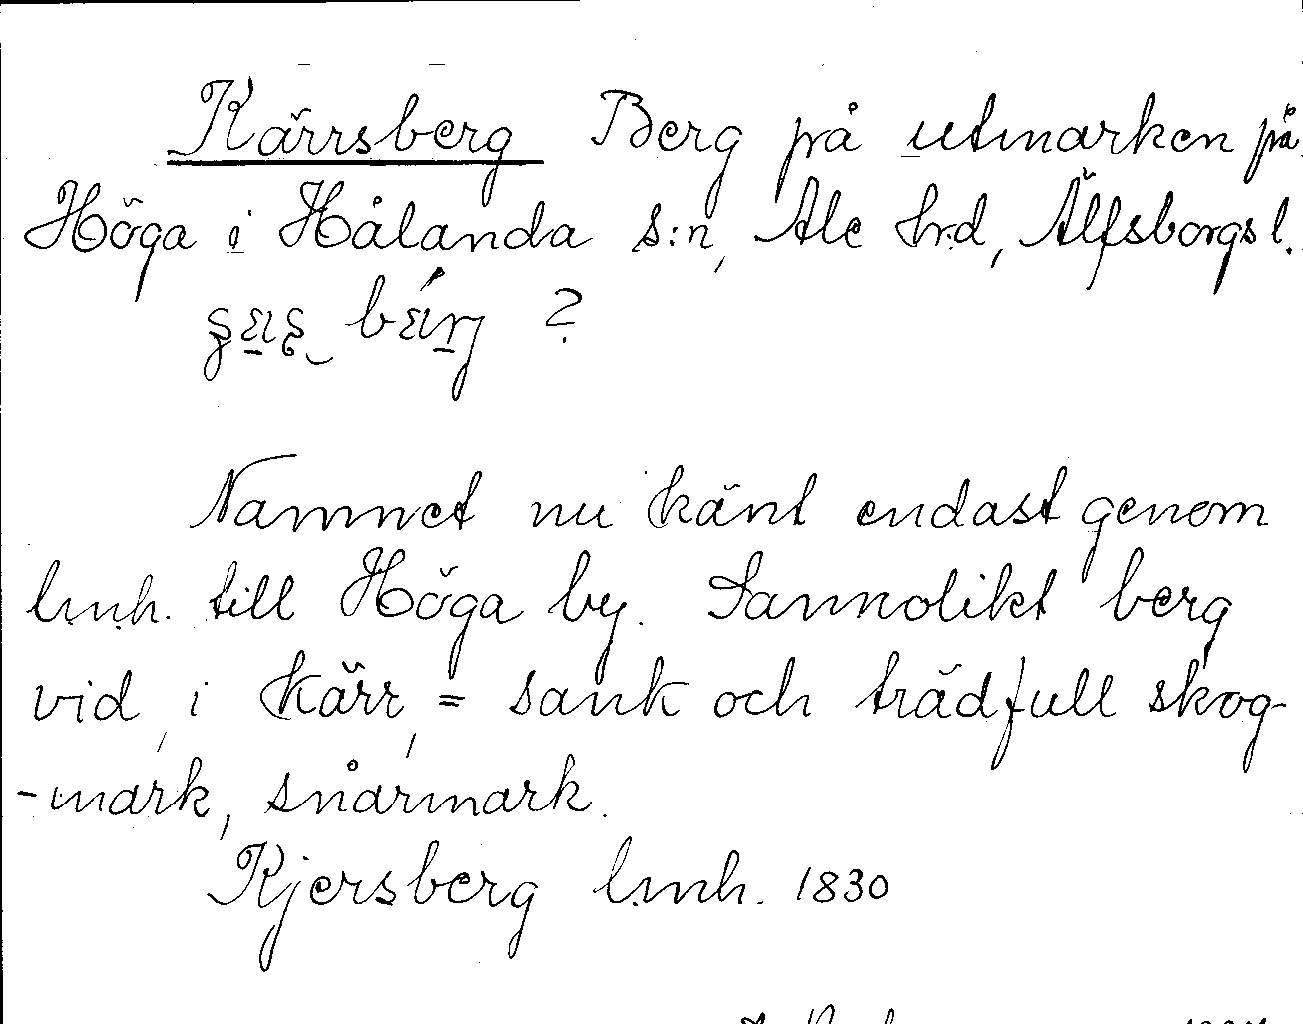 Kärrsberg Berg på utmarken på
Höga i Hålanda s:n, Ale hrd, Älfsborgs l.
bärj ?
Namnet nu känt endast genom
lmh. till Höga by. Sannolikt berg
vid, i kärr, = sank och trädfull skog-
-mark, snårmark.
Kjersberg lmh. 1830